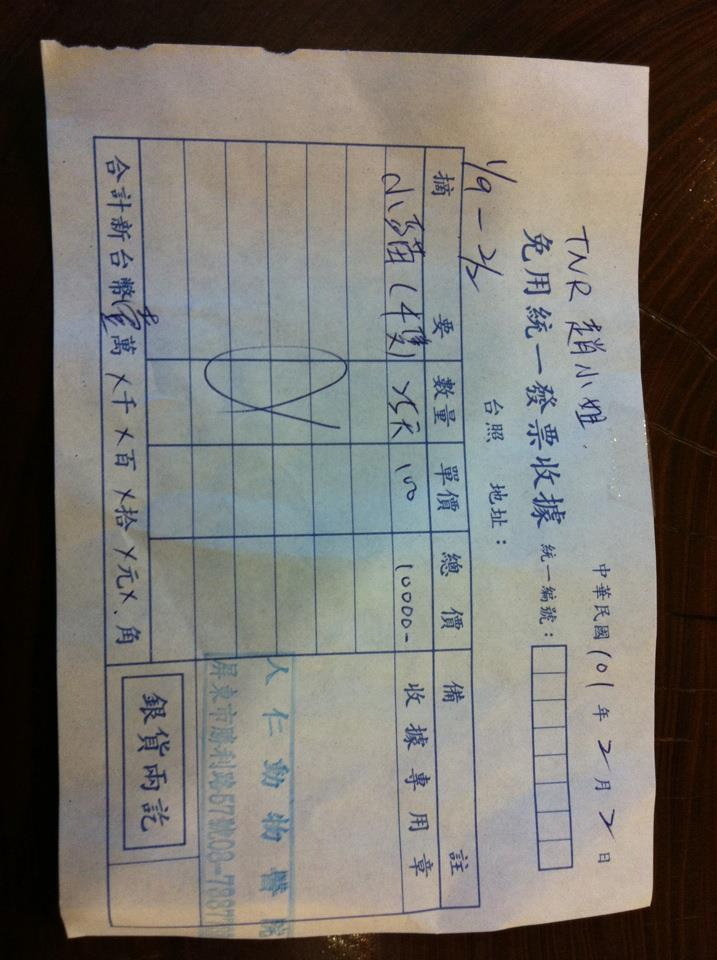 TNR 趙小姐
中華民國 101 年 2 月 2 日
免用統一發票收據
統一編號：
台照 地址：
1/9 - 2/2
摘要 數量 單價 總價 備註
小貓(4隻) 25天 100 10000-
收據專用章
人仁動物醫院
屏東市勝利路67號08-7887
合計新台幣 壹萬 X千 X百 X拾 X元 X角
銀貨兩訖